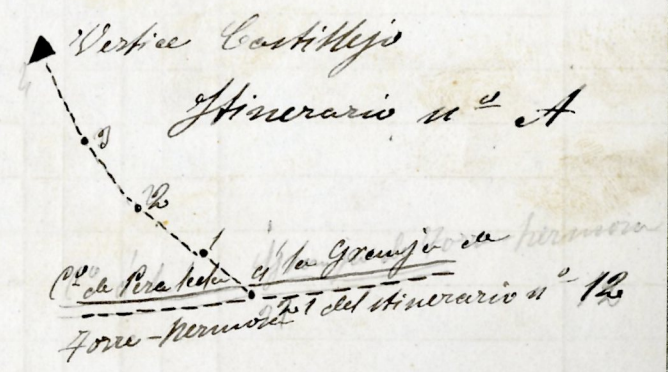 Vertice Castillejo
Itinerario nº A
3
2
1
Cº de Peraleda á la Granja de
Torre-hermosa
1 del itinerario nº 12